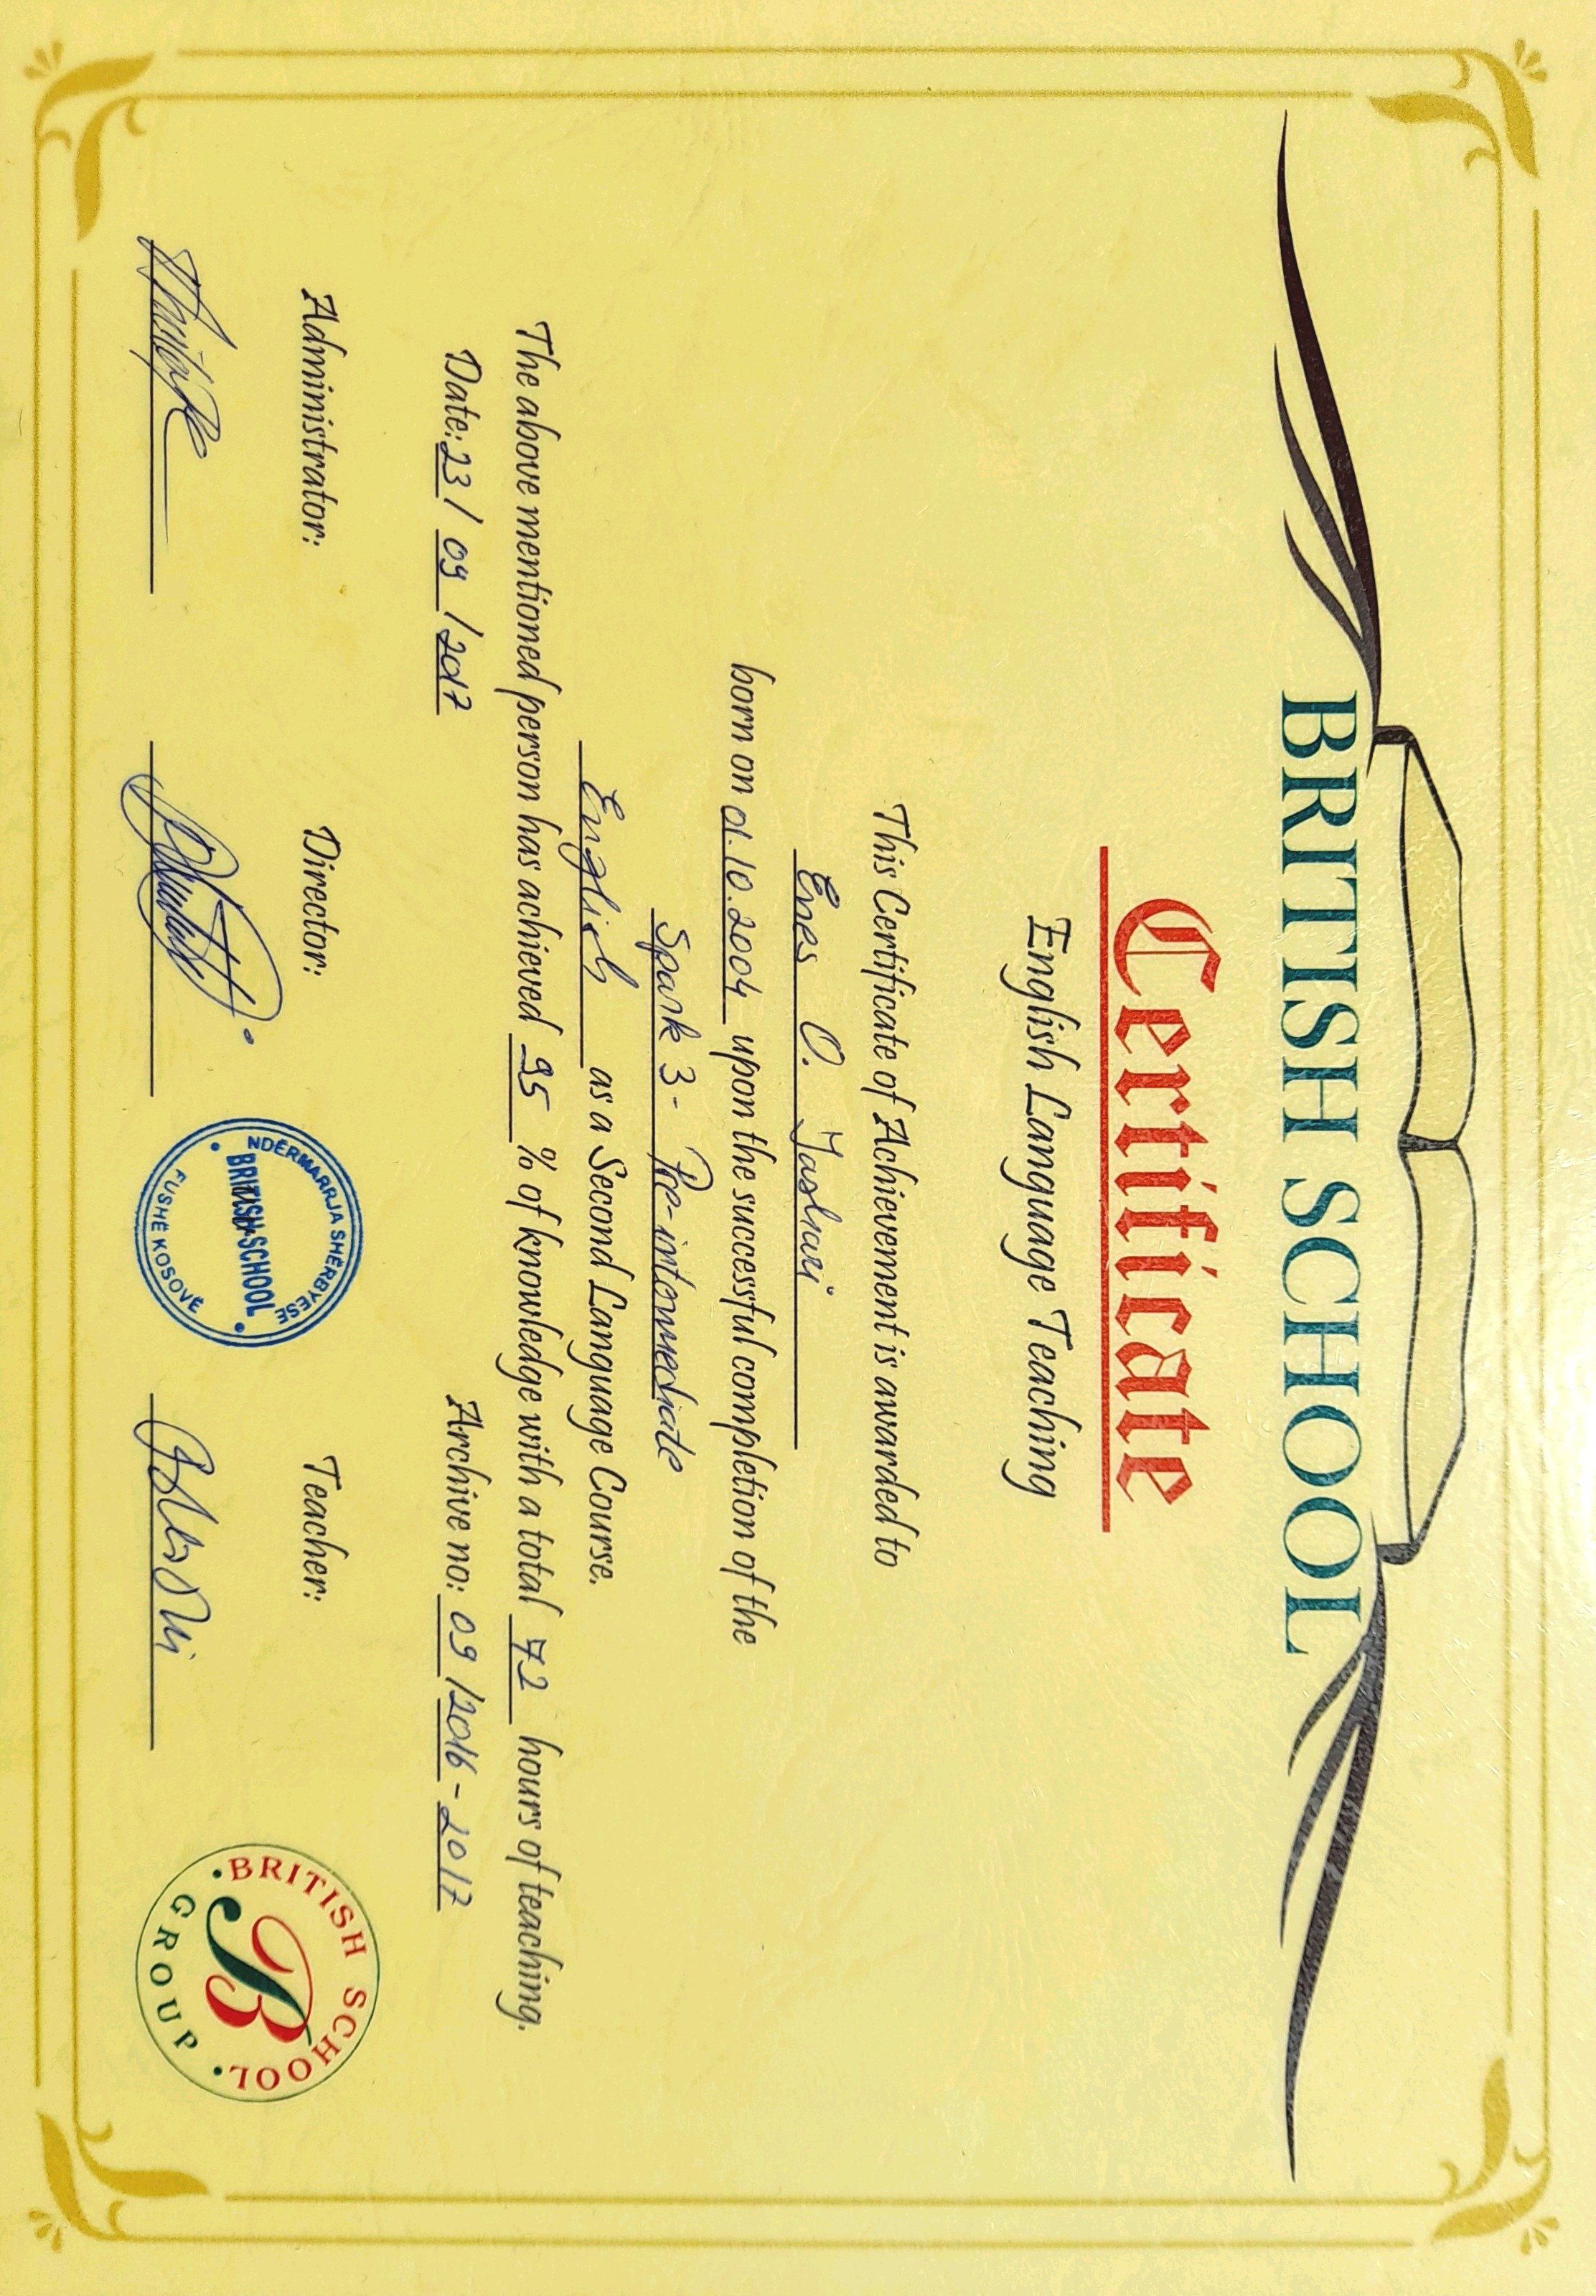 BRITISH SCHOOL
Certificate
English Language Teaching
This Certificate of Achievement is awarded to
Enes O. Jashari
born on 01.10.2004 upon the successful completion of the
Spark 3 - Pre-intermediate
English as a Second Language Course.
The above mentioned person has achieved 95 % of knowledge with a total 72 hours of teaching.
Date: 23 / 09 / 2017 Archive no: 09 / 2016 - 2017
Administrator: Director: Teacher:
NDËRMARRJA SHËRBYESE
BRITISH-SCHOOL
FUSHË KOSOVË
BRITISH SCHOOL
B
GROUP